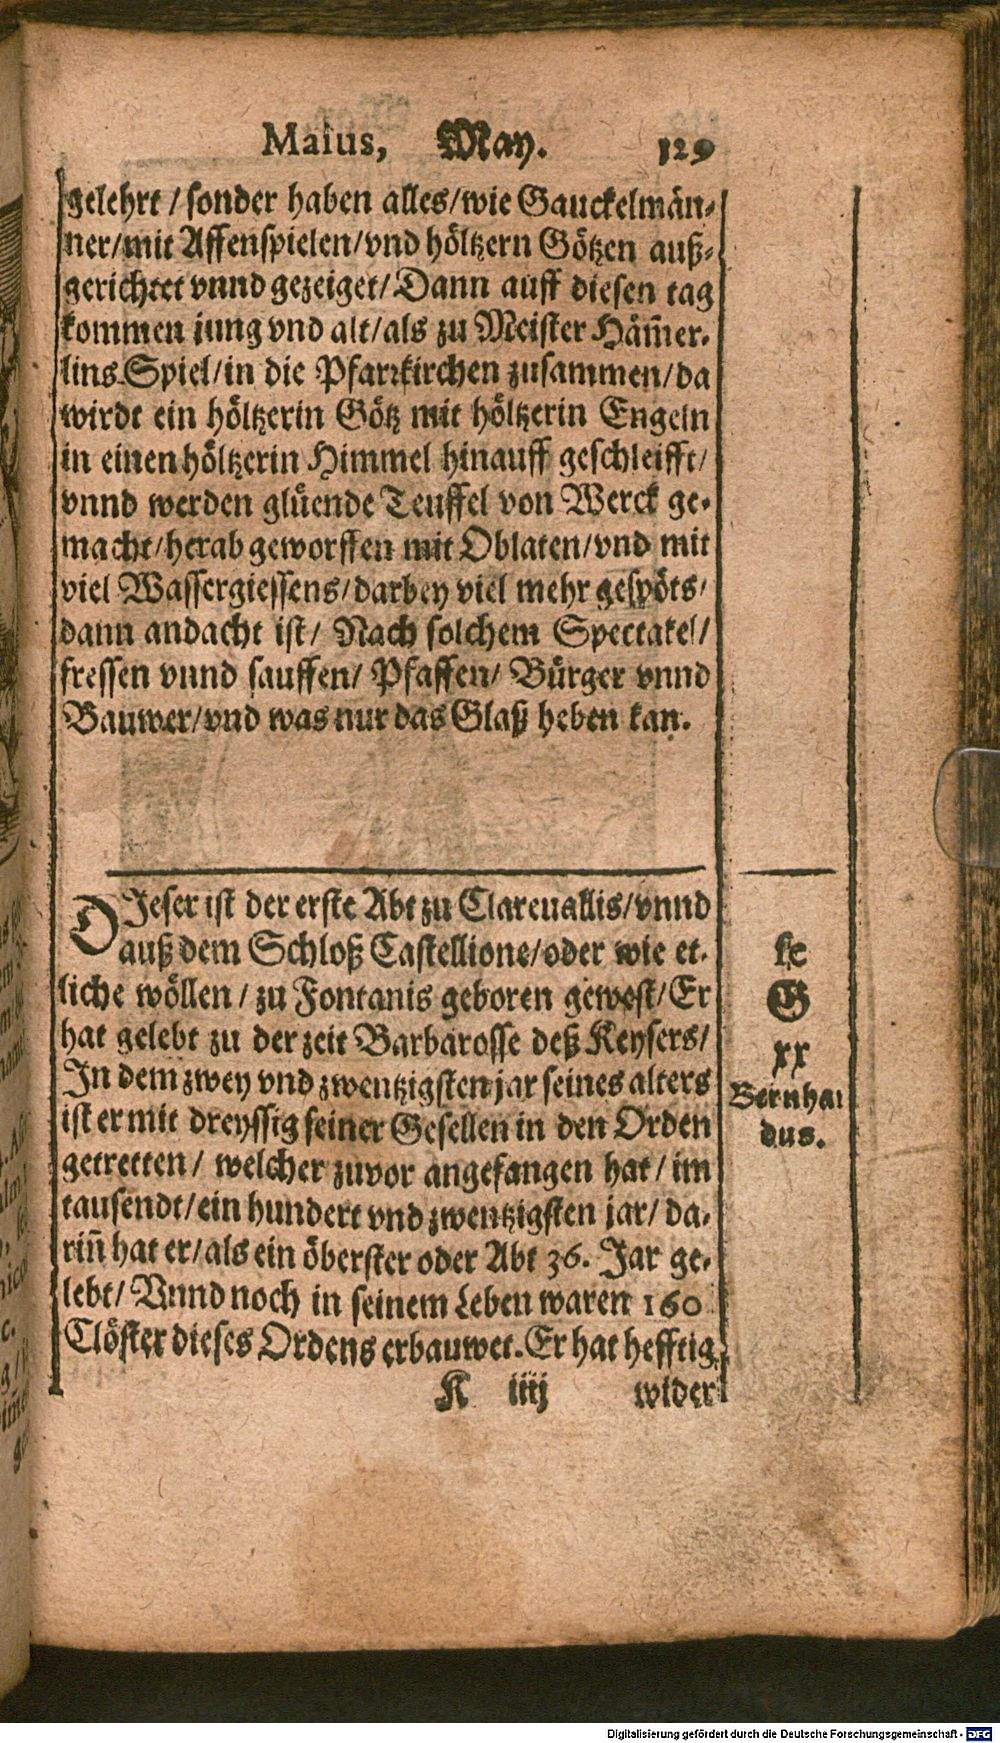 Maius, May. 129
gelehrt / sonder haben alles/wie Gauckelmän-
ner/mit Affenspielen/vnd höltzern Götzen auß-
gerichtet vnnd gezeiget/Dann auff diesen tag
kommen jung vnd alt/als zu Meister Häm̃er-
lins Spiel/in die Pfarrkirchen zusammen/da
wirdt ein höltzerin Götz mit höltzerin Engeln
in einen höltzerin Himmel hinauff geschleifft/
vnnd werden glüende Teuffel von Werck ge-
macht/herab geworffen mit Oblaten/vnd mit
viel Wassergiessens/darbey viel mehr gespöts/
dann andacht ist/ Nach solchem Spectakel/
fressen vnnd sauffen/ Pfaffen/ Bürger vnnd
Bauwer/vnd was nur das Glaß heben kan.
DIeser ist der erste Abt zu Clareuallis/vnnd
auß dem Schloß Castellione/oder wie et-
liche wöllen / zu Fontanis geboren gewest/Er
hat gelebt zu der zeit Barbarosse deß Keysers/
In dem zwey vnd zwentzigsten jar seines alters
ist er mit dreyssig seiner Gesellen in den Orden
getretten/ welcher zuvor angefangen hat/im
tausendt/ein hundert vnd zwentzigsten jar/ da-
riñ hat er/als ein öberster oder Abt 36. Jar ge-
lebt/ Vnnd noch in seinem Leben waren 160
Clöster dieses Ordens erbauwet. Er hat hefftig
K iiij wider
kc
G
xx
Bernhar
dus.
Digitalisierung gefördert durch die Deutsche Forschungsgemeinschaft - DFG